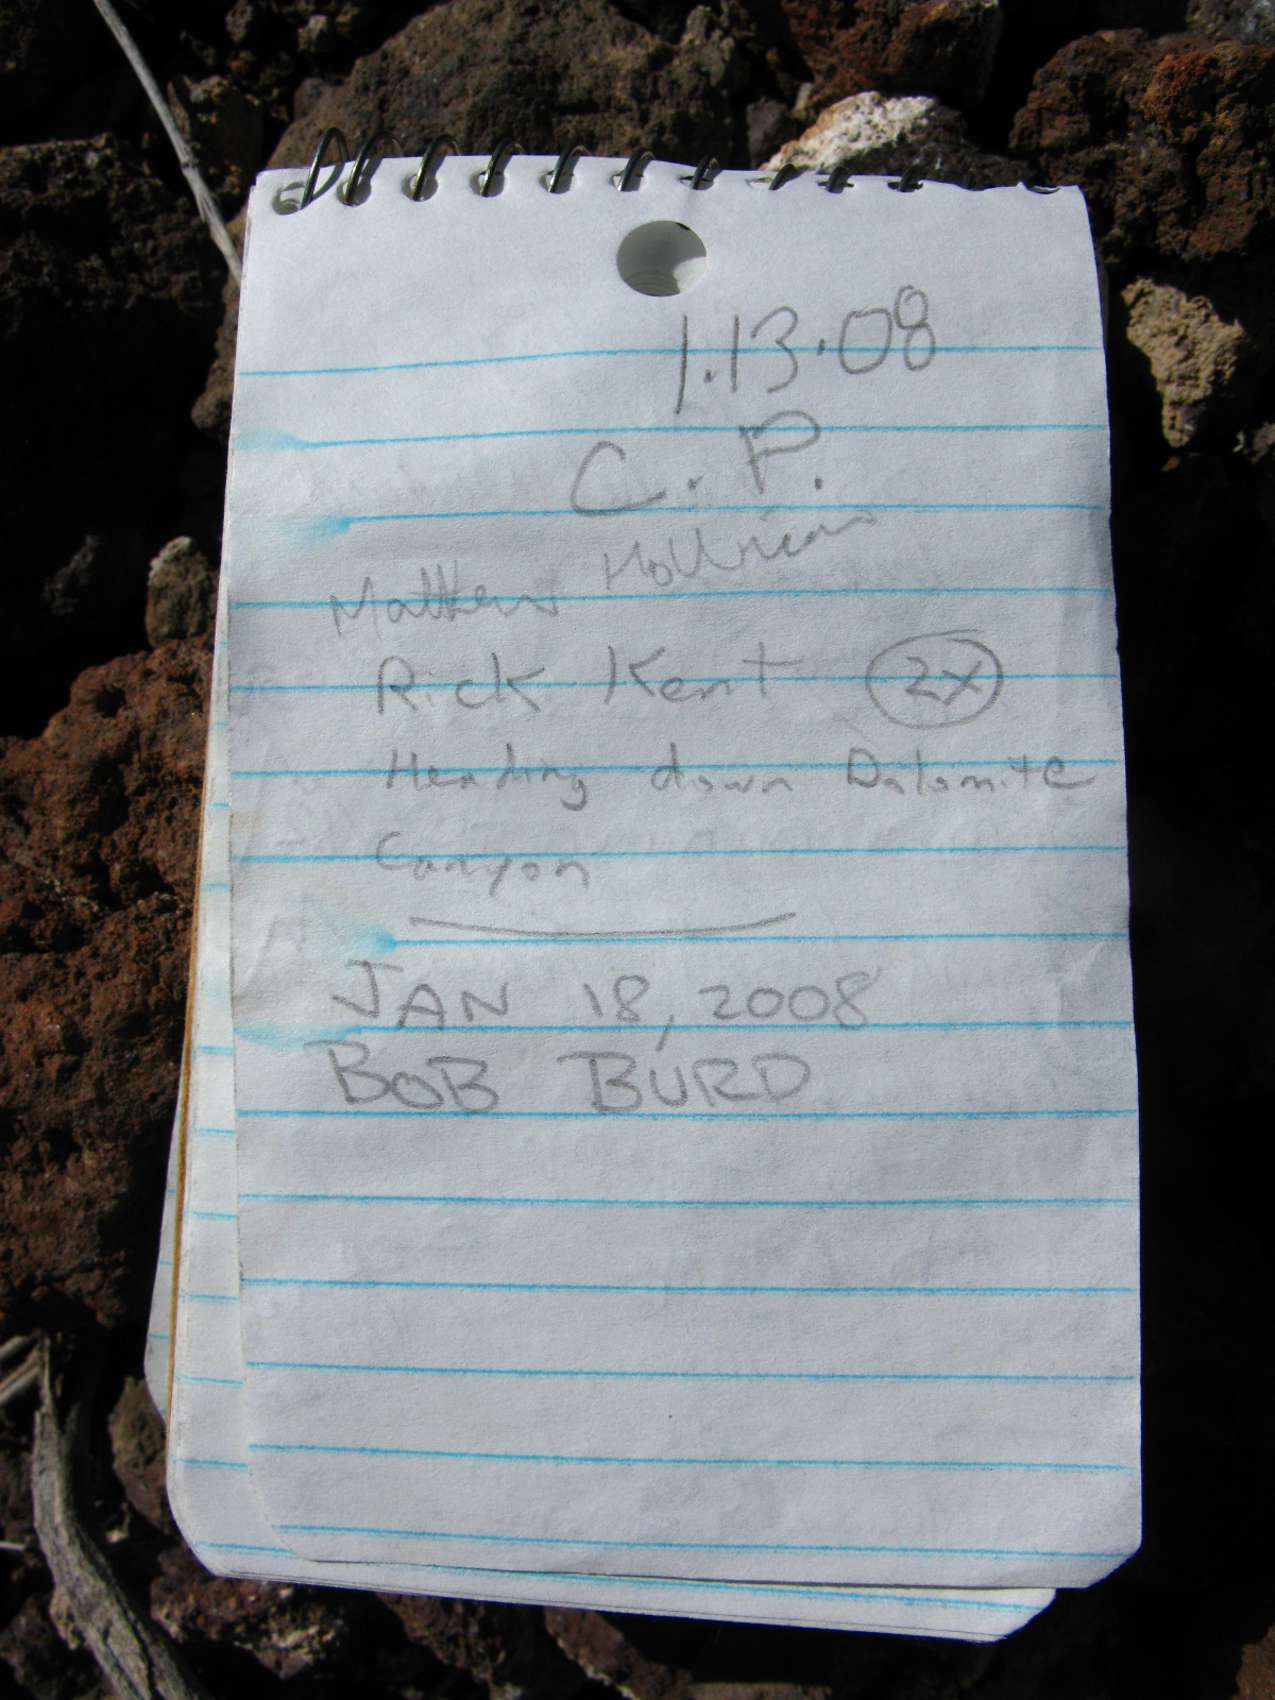 1.13.08
C. P.
Matthew Holliman
Rick Kent 2x
Heading down Dolomite
Canyon
JAN 18, 2008
BOB BURD